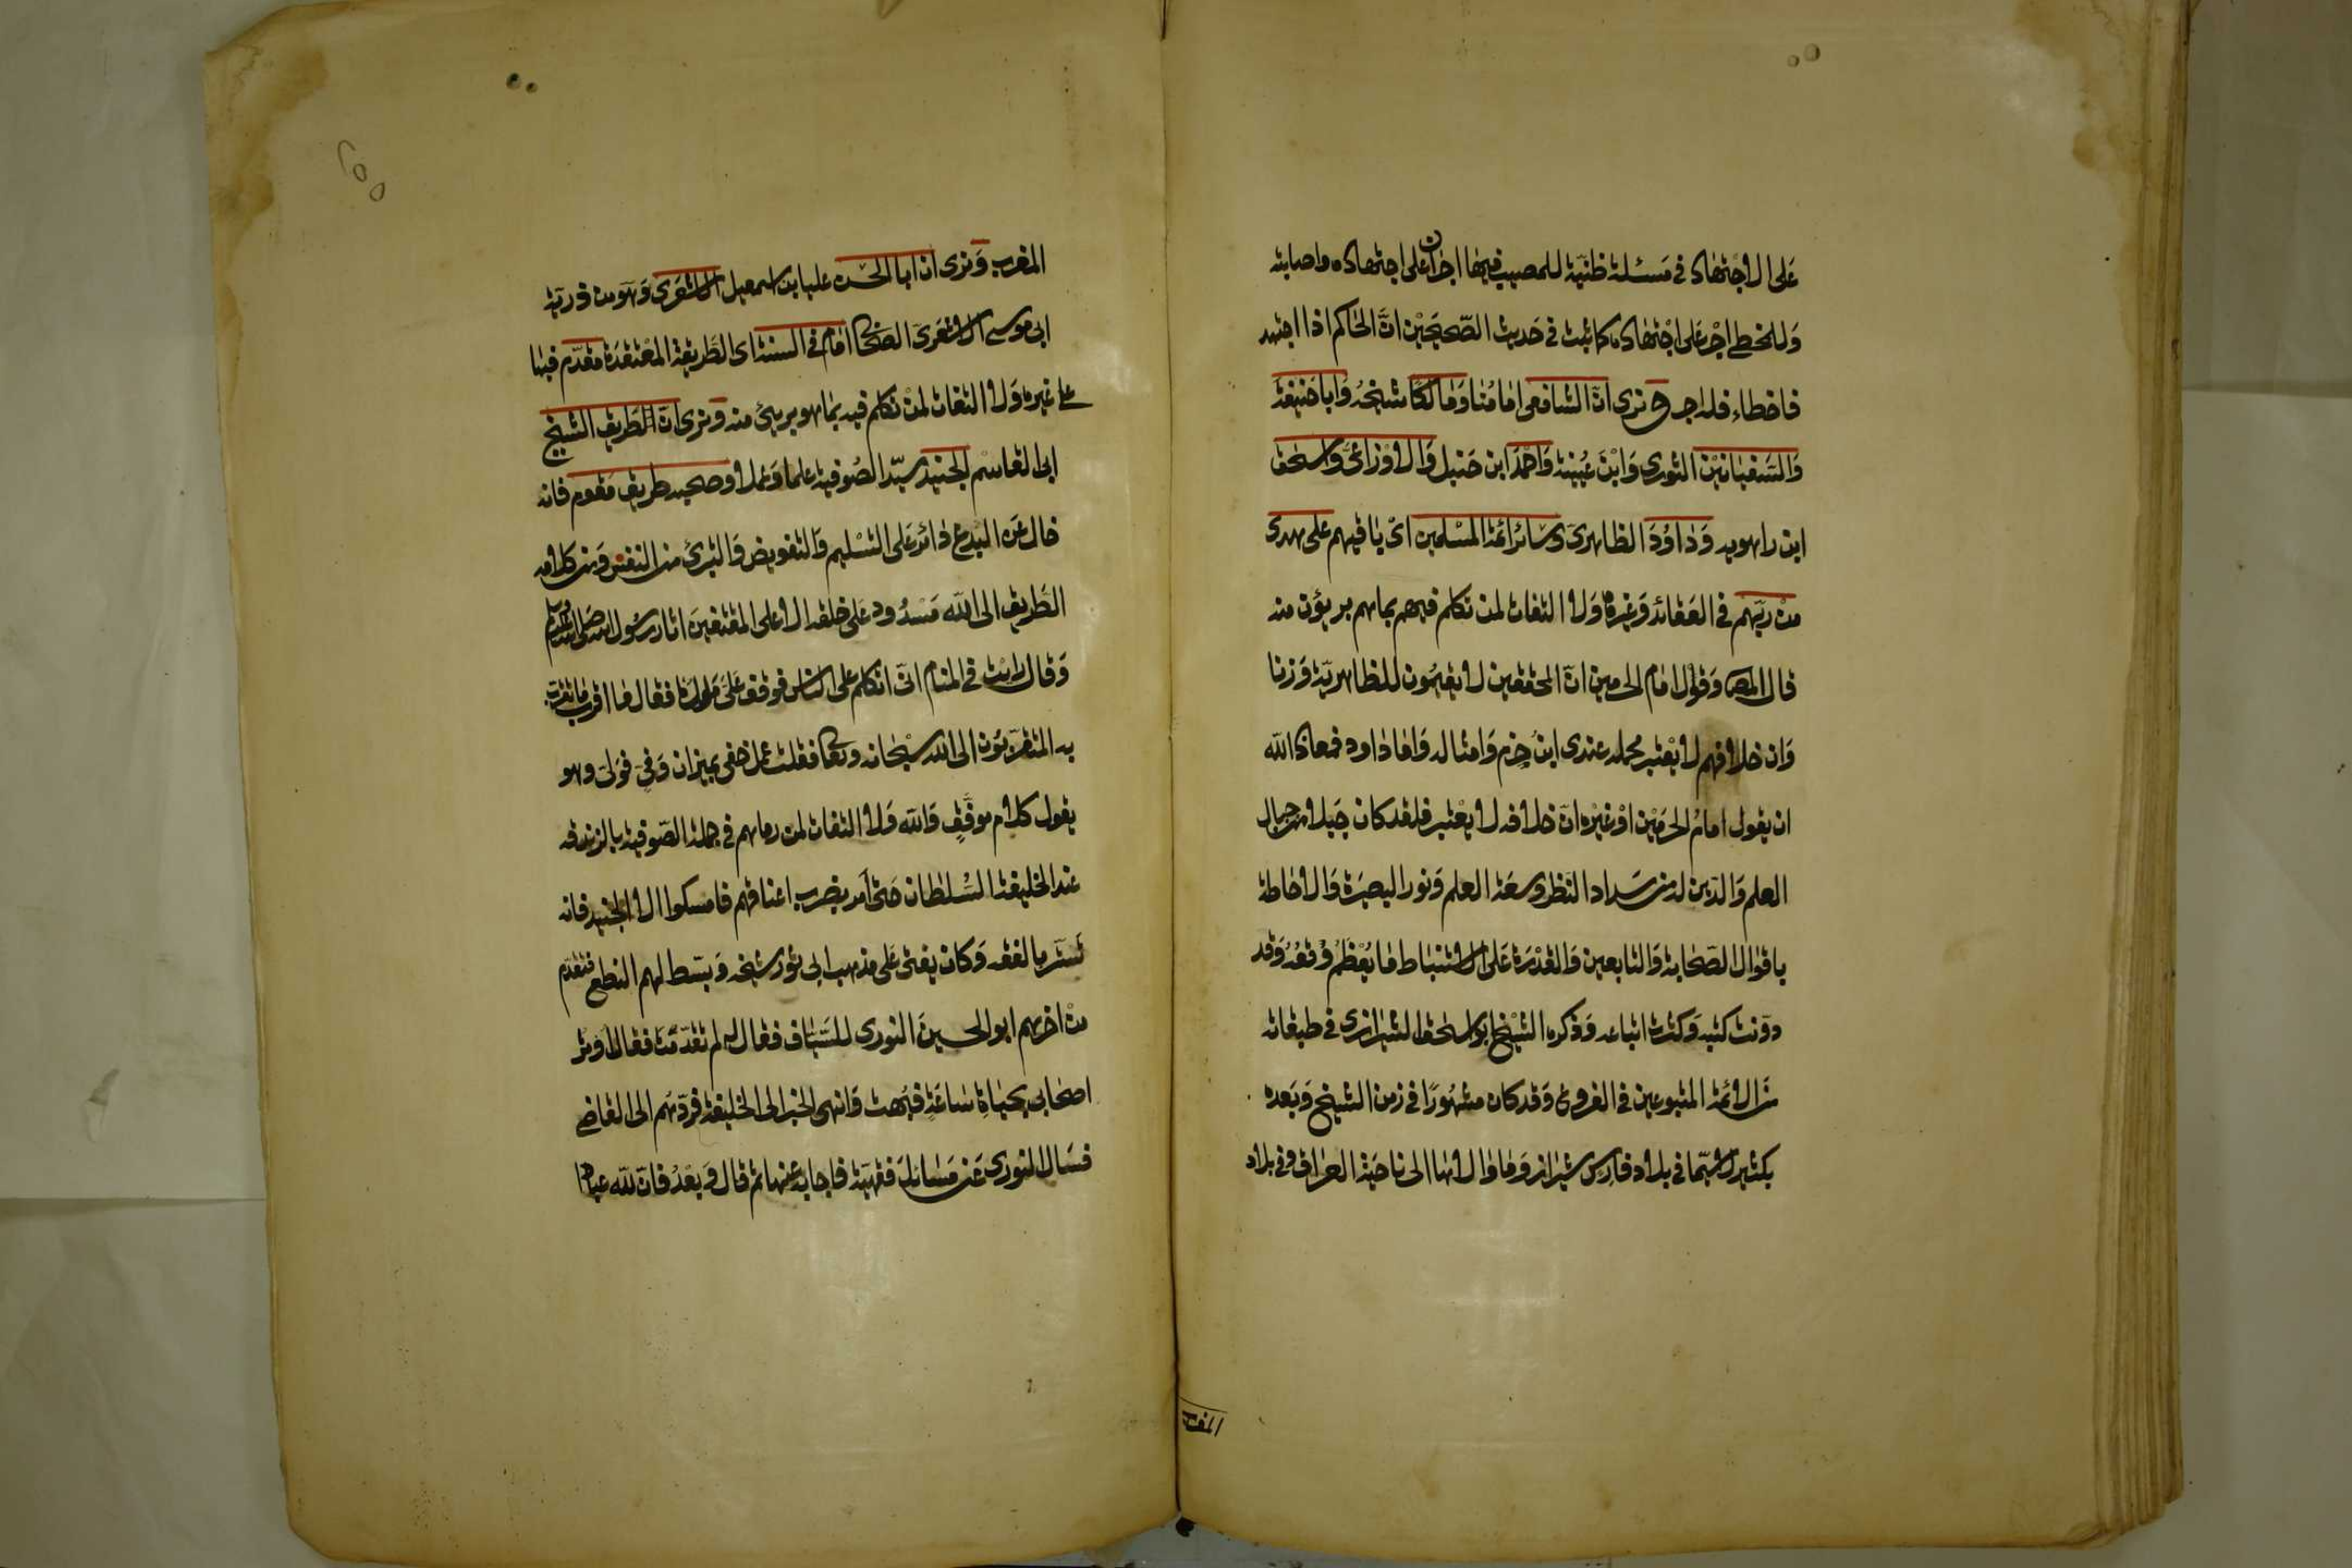 على الاجتهاد في مسئلة ظنية للمصيب فيها اجران على اجتهاده واصابته
وللمخطي اجر على اجتهاده كما يثبت في حديث الصحيحين ان الحاكم اذا اجتهد
فاخطاء فله اجر ونرى ان الشافعي امامنا ومالكا شيخه وابا حنيفة
والسفيانين الثوري وابن عيينة واحمد ابن حنبل والاوزاعي واسحق
ابن راهويه وداود الظاهري وسائر ائمة المسلمين اي باقيهم على هدى
من ربهم في العقائد وغيرها ولا التفات لمن تكلم فيهم بما هم بريؤن منه
قال المص وقول امام الحرمين ان المحققين لا يقيمون للظاهرية وزنا
وان خلافهم لا يعتبر محمله عندي ابن حزم وامثاله واما داود فمعاذ الله
ان يقول امام الحرمين او غيره ان خلافه لا يعتبر فلقد كان جبلا من جبال
العلم والدين له من سداد النظر وسعة العلم ونور البصيرة والاحاطة
باقوال الصحابة والتابعين والقدرة على الاستنباط ما يعظم وقعه وقد
دونت كتبه وكثرت اتباعه وذكره الشيخ ابو اسحق الشيرازي في طبقاته
من الائمة المتبوعين في الفروع وقد كان مشهورا في زمن الشيخ وبعده
بكثير لا سيما في بلاد فارس شيراز وما والاها الى ناحية العراق وفي بلاد
المغرب
٢٥٥
المغرب ونرى ان ابا الحسن عليا بن اسمعيل الاشعري وهو من ذرية
ابي موسى الاشعري الصحابي امام في السنة اي الطريقة المعتقدة مقدم فيها
على غيره ولا التفات لمن تكلم فيه بما هو بريئ منه ونرى ان الطريق الشيخ
ابي القاسم الجنيد سيد الصوفية علما وعملا وصحبه طريق مقوم فانه
خال عن البدع دائر على التسليم والتفويض والتبري من النفس ومن كلامه
الطريق الى الله مسدود على خلقه الا على المقتفين اثار رسول الله صلى الله عليه وسلم
وقال رايت في المنام اني اتكلم على الناس فوقف علي ملك فقال ما اقرب ما تقرب
به المتقربون الى الله سبحانه وتعالى فقلت عمل خفي بميزان وفي فولى وهو
يقول كلام موفق والله ولا التفات لمن رماهم في جملة الصوفية بالزندقة
عند الخليفة السلطان حتى امر بضرب اعناقهم فامسكوا الا الجنيد فانه
تستر بالفقه وكان يفتي على مذهب ابي ثور شيخه وبسط لهم النطع فتقدم
من اخرهم ابو الحسين النوري للسياف فقال له لم تقدمت فقال اوثر
اصحابي بحياة ساعة فبهت وانهى الخبر الى الخليفة فردهم الى القاضي
فسال النوري عن مسائل فقهية فاجابه عنها ثم قال وبعد فان لله عبادا